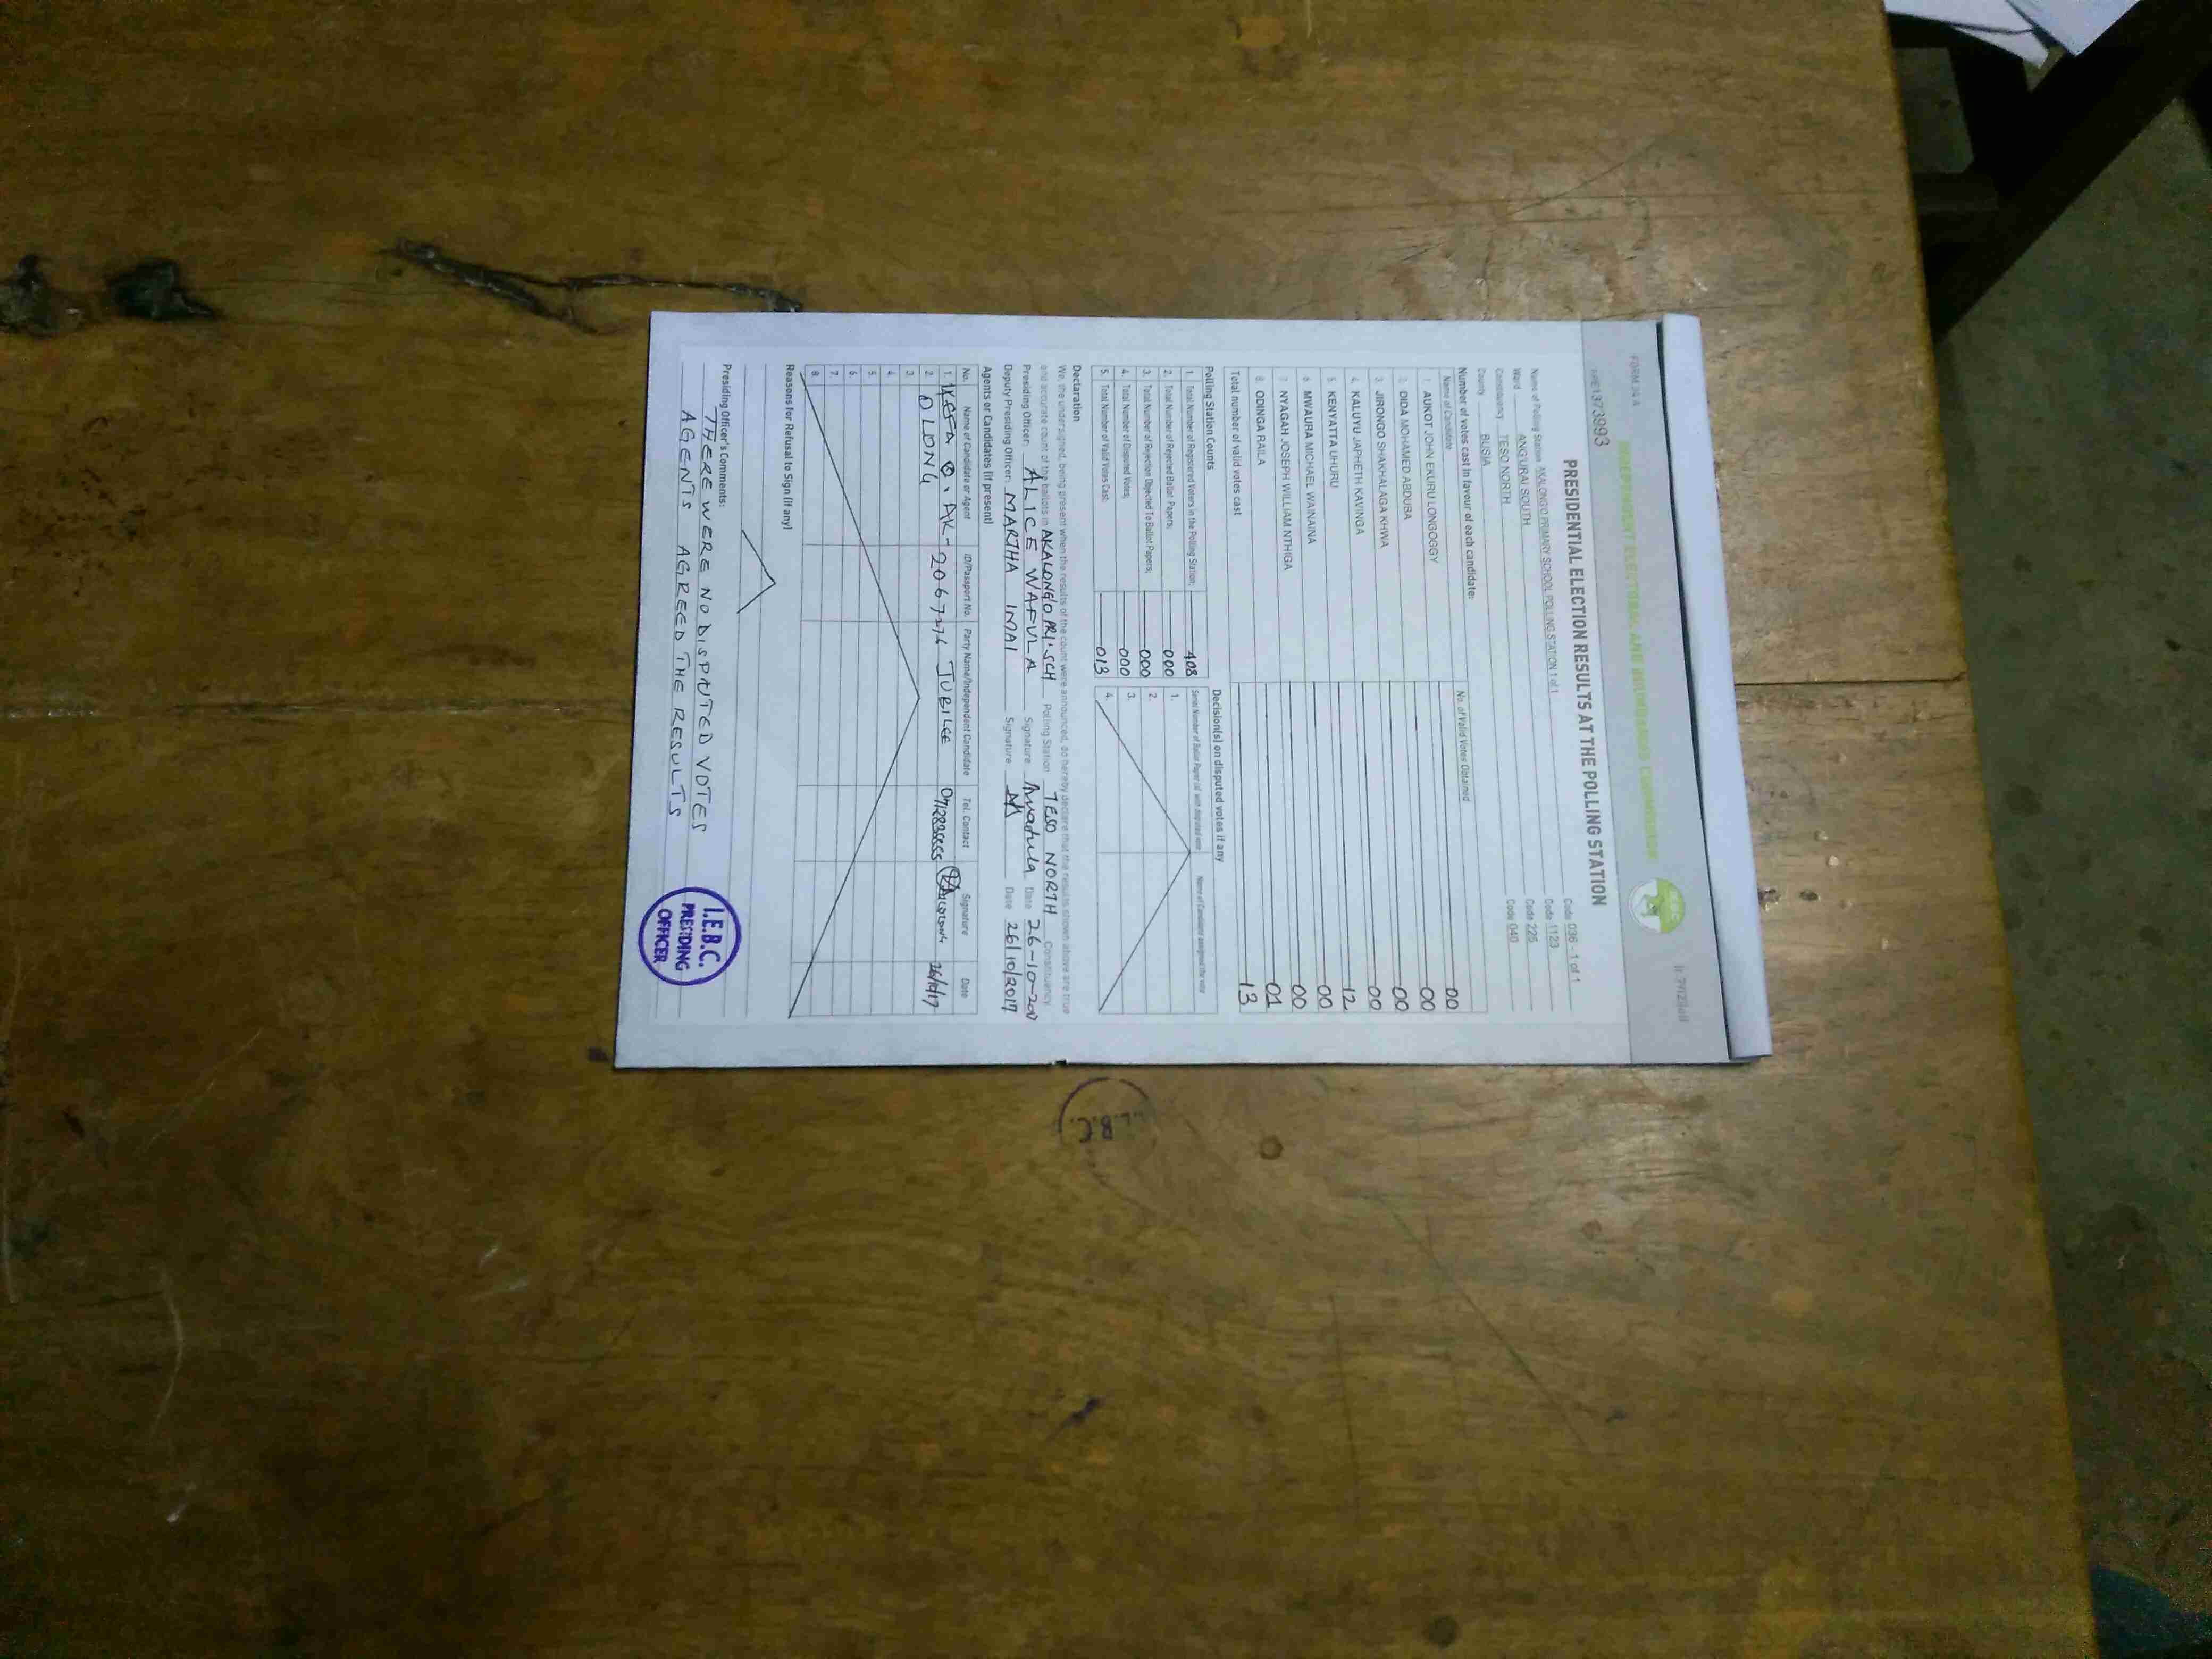 FORM 34 A
INDEPENDENT ELECTORAL AND BOUNDARIES COMMISSION
IEBC
PRE1373993
PRESIDENTIAL ELECTION RESULTS AT THE POLLING STATION
Name of Polling Station AKALONG'O PRIMARY SCHOOL POLLING STATION 1 of 1 Code 036 - 1 of 1
Ward ANG'URAI SOUTH Code 1123
Constituency TESO NORTH Code 225
County BUSIA Code 040
Number of votes cast in favour of each candidate:
Name of Candidate No. of Valid Votes Obtained
1. AUKOT JOHN EKURU LONGOGGY 00
2. DIDA MOHAMED ABDUBA 00
3. JIRONGO SHAKHALAGA KHWA 00
4. KALUYU JAPHETH KAVINGA 00
5. KENYATTA UHURU 12
6. MWAURA MICHAEL WAINAINA 00
7. NYAGAH JOSEPH WILLIAM NTHIGA 00
8. ODINGA RAILA 01
Total number of valid votes cast 13
Polling Station Counts
1. Total Number of Registered Voters in the Polling Station; 408
2. Total Number of Rejected Ballot Papers; 000
3. Total Number of Rejection Objected To Ballot Papers; 000
4. Total Number of Disputed Votes; 000
5. Total Number of Valid Votes Cast; 013
Decision(s) on disputed votes if any
Serial Number of Ballot Paper (s) with disputed vote Name of Candidate assigned the vote
1.
2.
3.
4.
Declaration
We, the undersigned, being present when the results of the count were announced, do hereby declare that the results shown above are true
and accurate count of the ballots in AKALONG'O PRI. SCH Polling Station TESO NORTH Constituency
Presiding Officer: ALICE WAFULA Signature Date 26-10-20
Deputy Presiding Officer: MARTHA IMAI Signature Date 26/10/2017
Agents or Candidates (if present)
No. Name of Candidate or Agent ID/Passport No. Party Name/Independent Candidate Tel. Contact Signature Date
1. AK- 2067276 JUBILEE
2. OLONG 26/10/17
3.
4.
5.
6.
7.
8.
Reasons for Refusal to Sign (if any)
Presiding Officer's Comments:
THERE WERE NO DISPUTED VOTES
AGENTS AGREED THE RESULTS
I.E.B.C.
PRESIDING
OFFICER